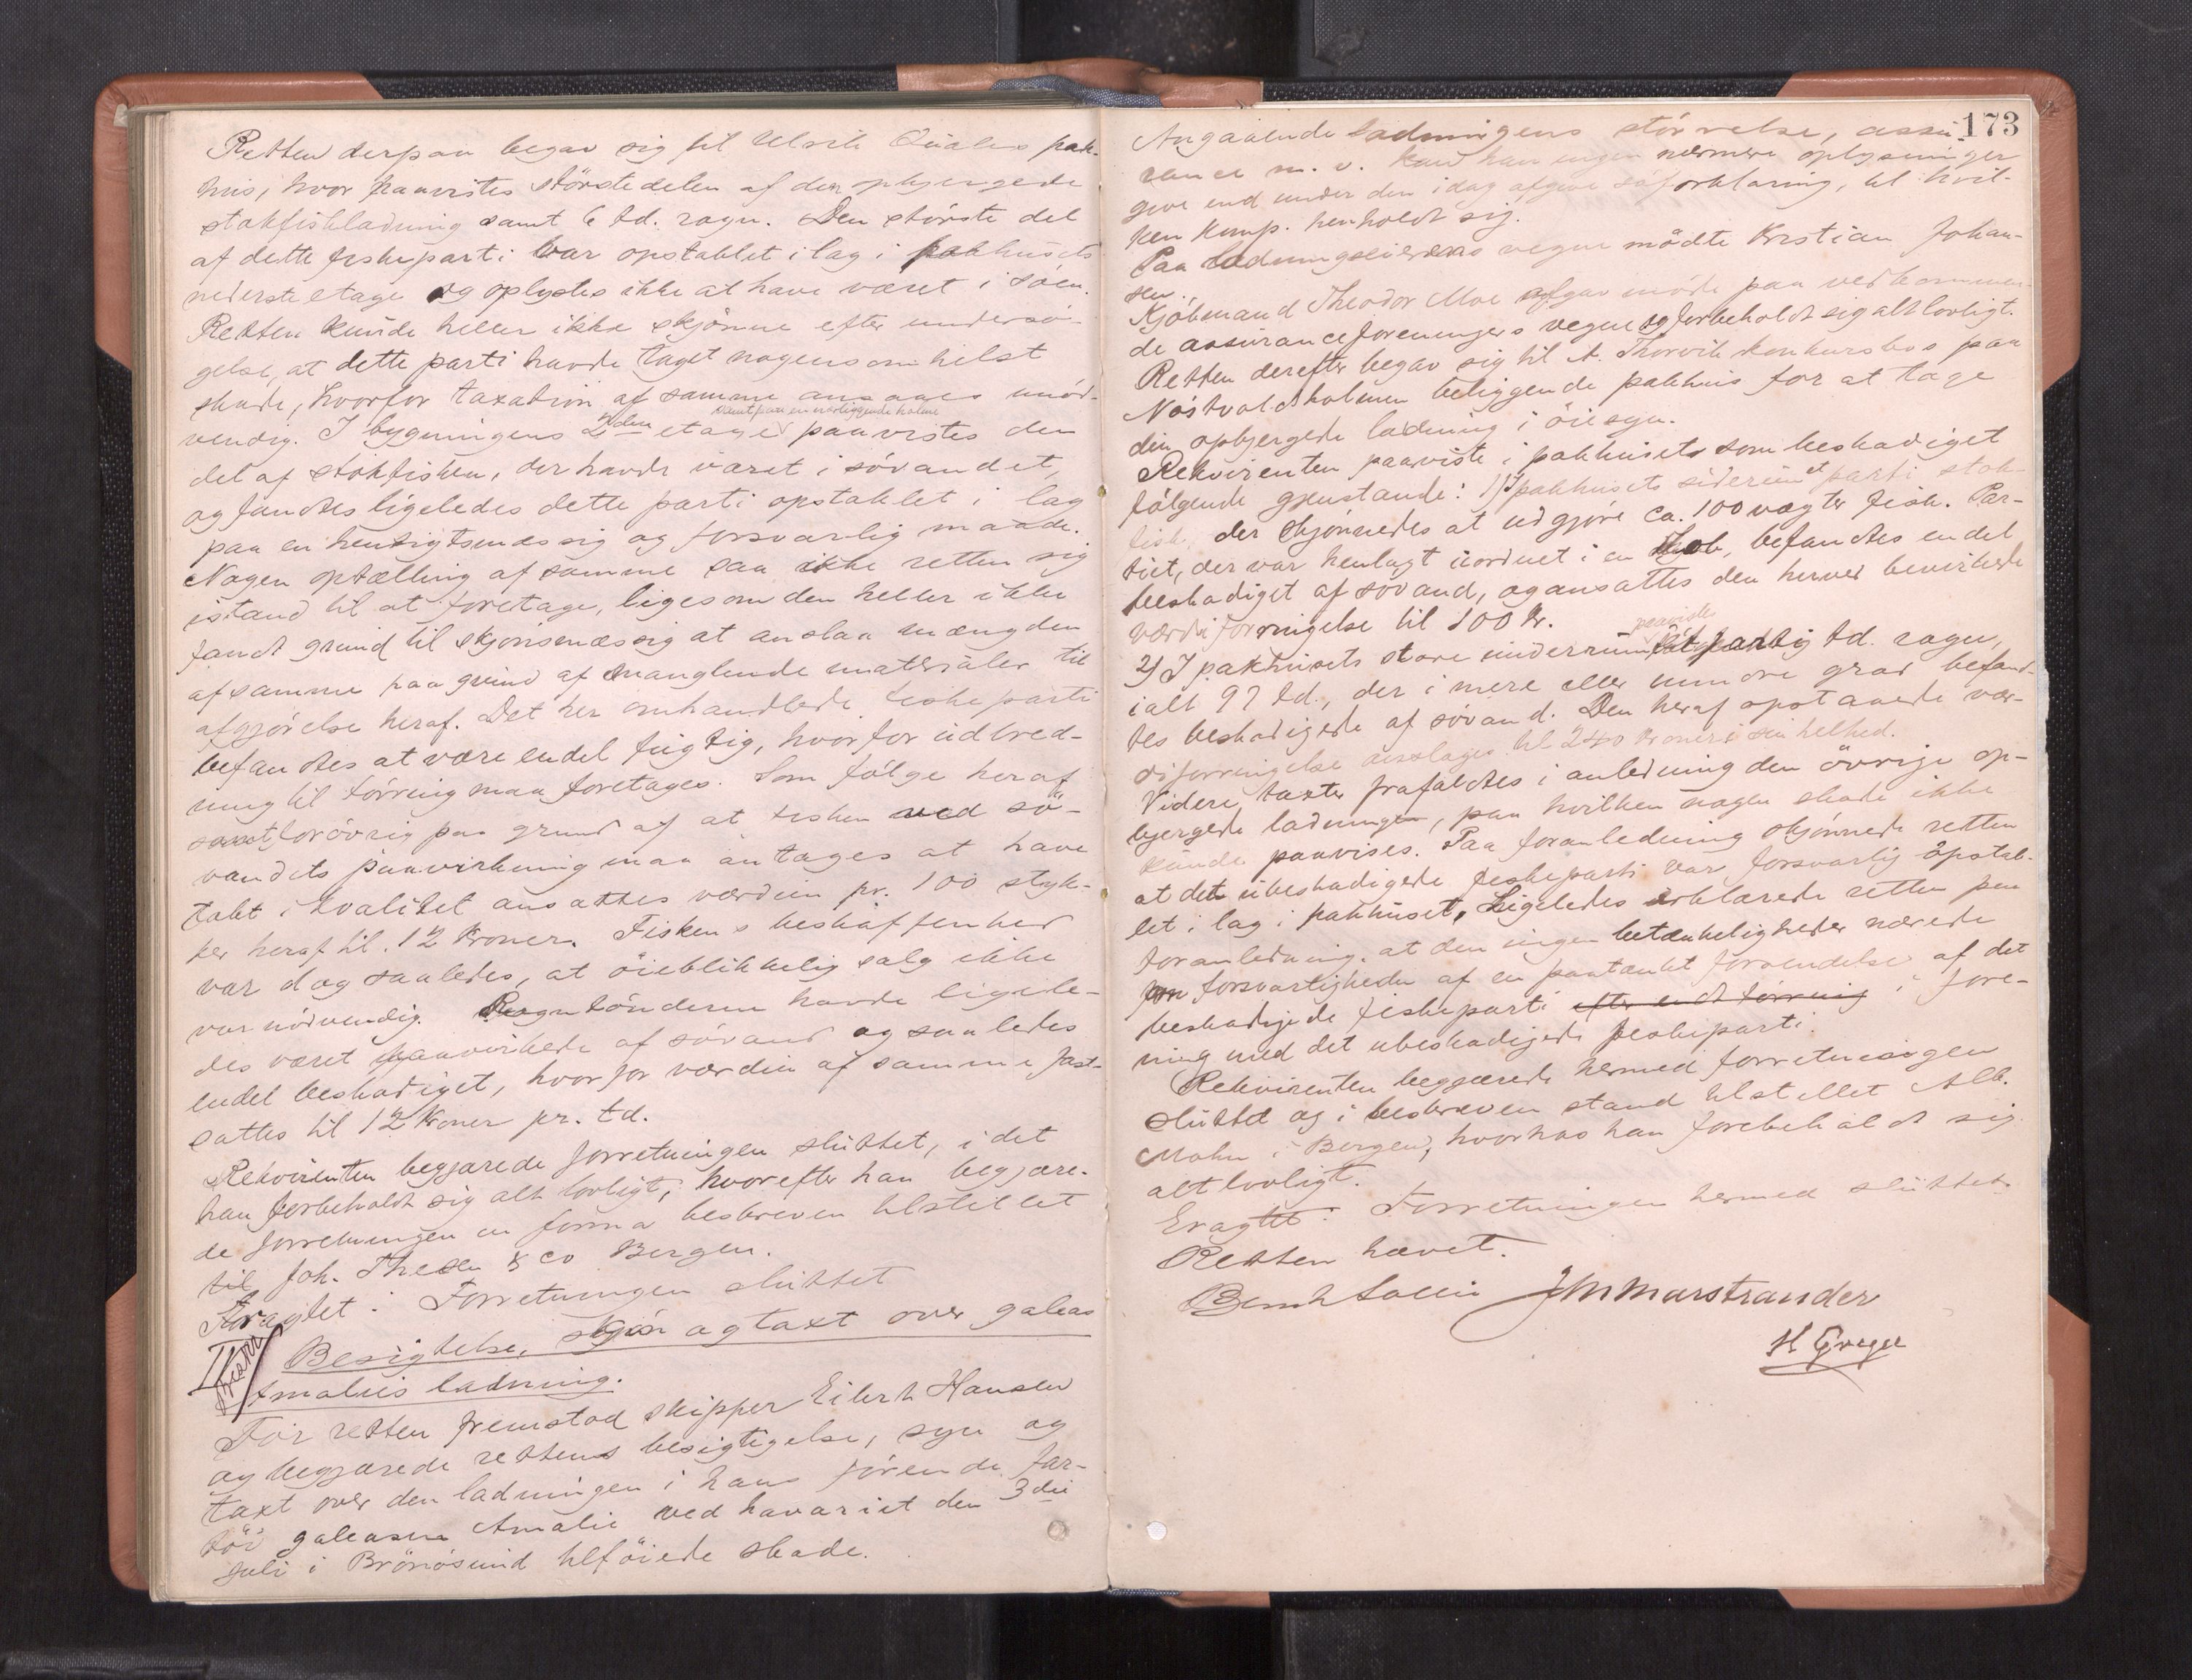 Retten derpaa begav sig til Ulrik Qvales pak-
hus, hvor paavistes störstedelen af den opbjergede
stokfiskladning samt 6 td. rogn. Den störste del
af dette fiskeparti var opstablet i lag i pakhusets
nederste etage og oplystes ikke at have været i söen.
Retten kunde heller ikke skjönne efter undersö-
gelse, at dette parti havde taget nogensomhelst
skade, hvorfor taxation af samme ansaaes unöd-
vendig. I bygningens 2den etage samt paa en nærliggende holme paavistes den
del af stokfisken, der havde været i sövandet,
og fandtes ligeledes dette parti opstablet i lag
paa en hensigtsmæssig og forsvarlig maade.
Nogen optælling af samme saa ikke retten sig
istand til at foretage, ligesom den heller ikke
fandt grund til skjönsmæssig at anslaa mængden
af samme paa grund af manglende materialer til
afgjörelse heraf. Det her omhandlede fiskeparti
befandtes at være endel fugtig, hvorfor udbred-
ning til törring maa foretages. Som fölge heraf
samt forövrig paa grund af at fisken ved sö-
vandets paavirkning maa antages at have
tabt i kvalitet ansattes værdien pr. 100 styk-
ker heraf til 12 Kroner. Fiskens beskaffenhed
var dog saaledes, at öieblikkelig salg ikke
var nödvendig. Rogntönderne havde ligele-
des været paavirkede af sövand og saaledes
endel beskadiget, hvorfor værdien af samme fast-
sattes til 12 Kroner pr. td.
Rekvirenten begjærede forretningen sluttet, idet
han forbeholdt sig alt lovligt, hvorefter han begjære-
de forretningen in forma beskreven tilstillet
til Joh. Thesen & co Bergen.
Eragtet: Forretningen sluttet
II Besigtelse, skjön og taxt over galeas
Amalies ladning.
For retten fremstod skipper Eilert Hansen
og begjærede rettens besigtigelse, syn og
taxt over den ladningen i hans förende far-
töi galeasen Amalie ved havariet den 3die
Juli i Brönösund tilföiede skade.
173
Angaaende ladningens störrelse, assu-
rance m. v. kan han ingen nærmere oplysninger
give end under den idag afgivne söforklaring, til hvil-
ken komp. henholdt sig.
Paa ladningseierens vegne mödte Kristian Johan-
sen.
Kjöbmand Theodor Moe afgav möde paa vedkommen-
de assuranceforeningers vegne og forbeholdt sig alt lovligt.
Retten derefter begav sig til A. Thorvik konkursbos paa
Nöstvoldholmen beliggende pakhus for at tage
den opbjergede ladning i öiesyn.
Rekvirenten paaviste i pakhuset som beskadiget
fölgende gjenstande: 1) I pakhusets siderum et parti stok-
fisk, der skjönnedes at udgjöre ca. 100 vægter fisk. Par-
tiet, der var henlagt uordnet i en hob, befandtes endel
beskadiget af sövand, og ansattes den herved bevirkede
værdiforringelse til 100 Kr.
2) I pakhusets store underrum paavistes et parti td. rogn,
ialt 97 td., der i mere eller mindre grad befand-
tes beskadigede af sövand. Den heraf opstaaede vær-
diforringelse ansloges til 240 Kroner i sin helhed.
Videre taxter frafaldtes i anledning den övrige op-
bjergede ladninge, paa hvilken nogen skade ikke
kunde paavises. Paa foranledning skjönnede retten
at det ubeskadigede fiskeparti var forsvarlig opstab-
let i lag i pakhuset. Ligeledes erklærede retten paa
foranledning, at den ingen betænkeligheder nærede
for forsvarligheden af en paatænkt forsendelse af det
beskadigede fiskeparti efter endt törring i fore-
ning med det ubeskadigede fiskeparti.
Rekvirenten begjærede hermed forretningen
sluttet og i beskreven stand tilstillet Alb.
Mohn i Bergen, hvorhos han forebeholdt sig
alt lovligt.
Eragtet: Forretningen hermed sluttet
Retten hævet.
JM Marstrander
H Greger